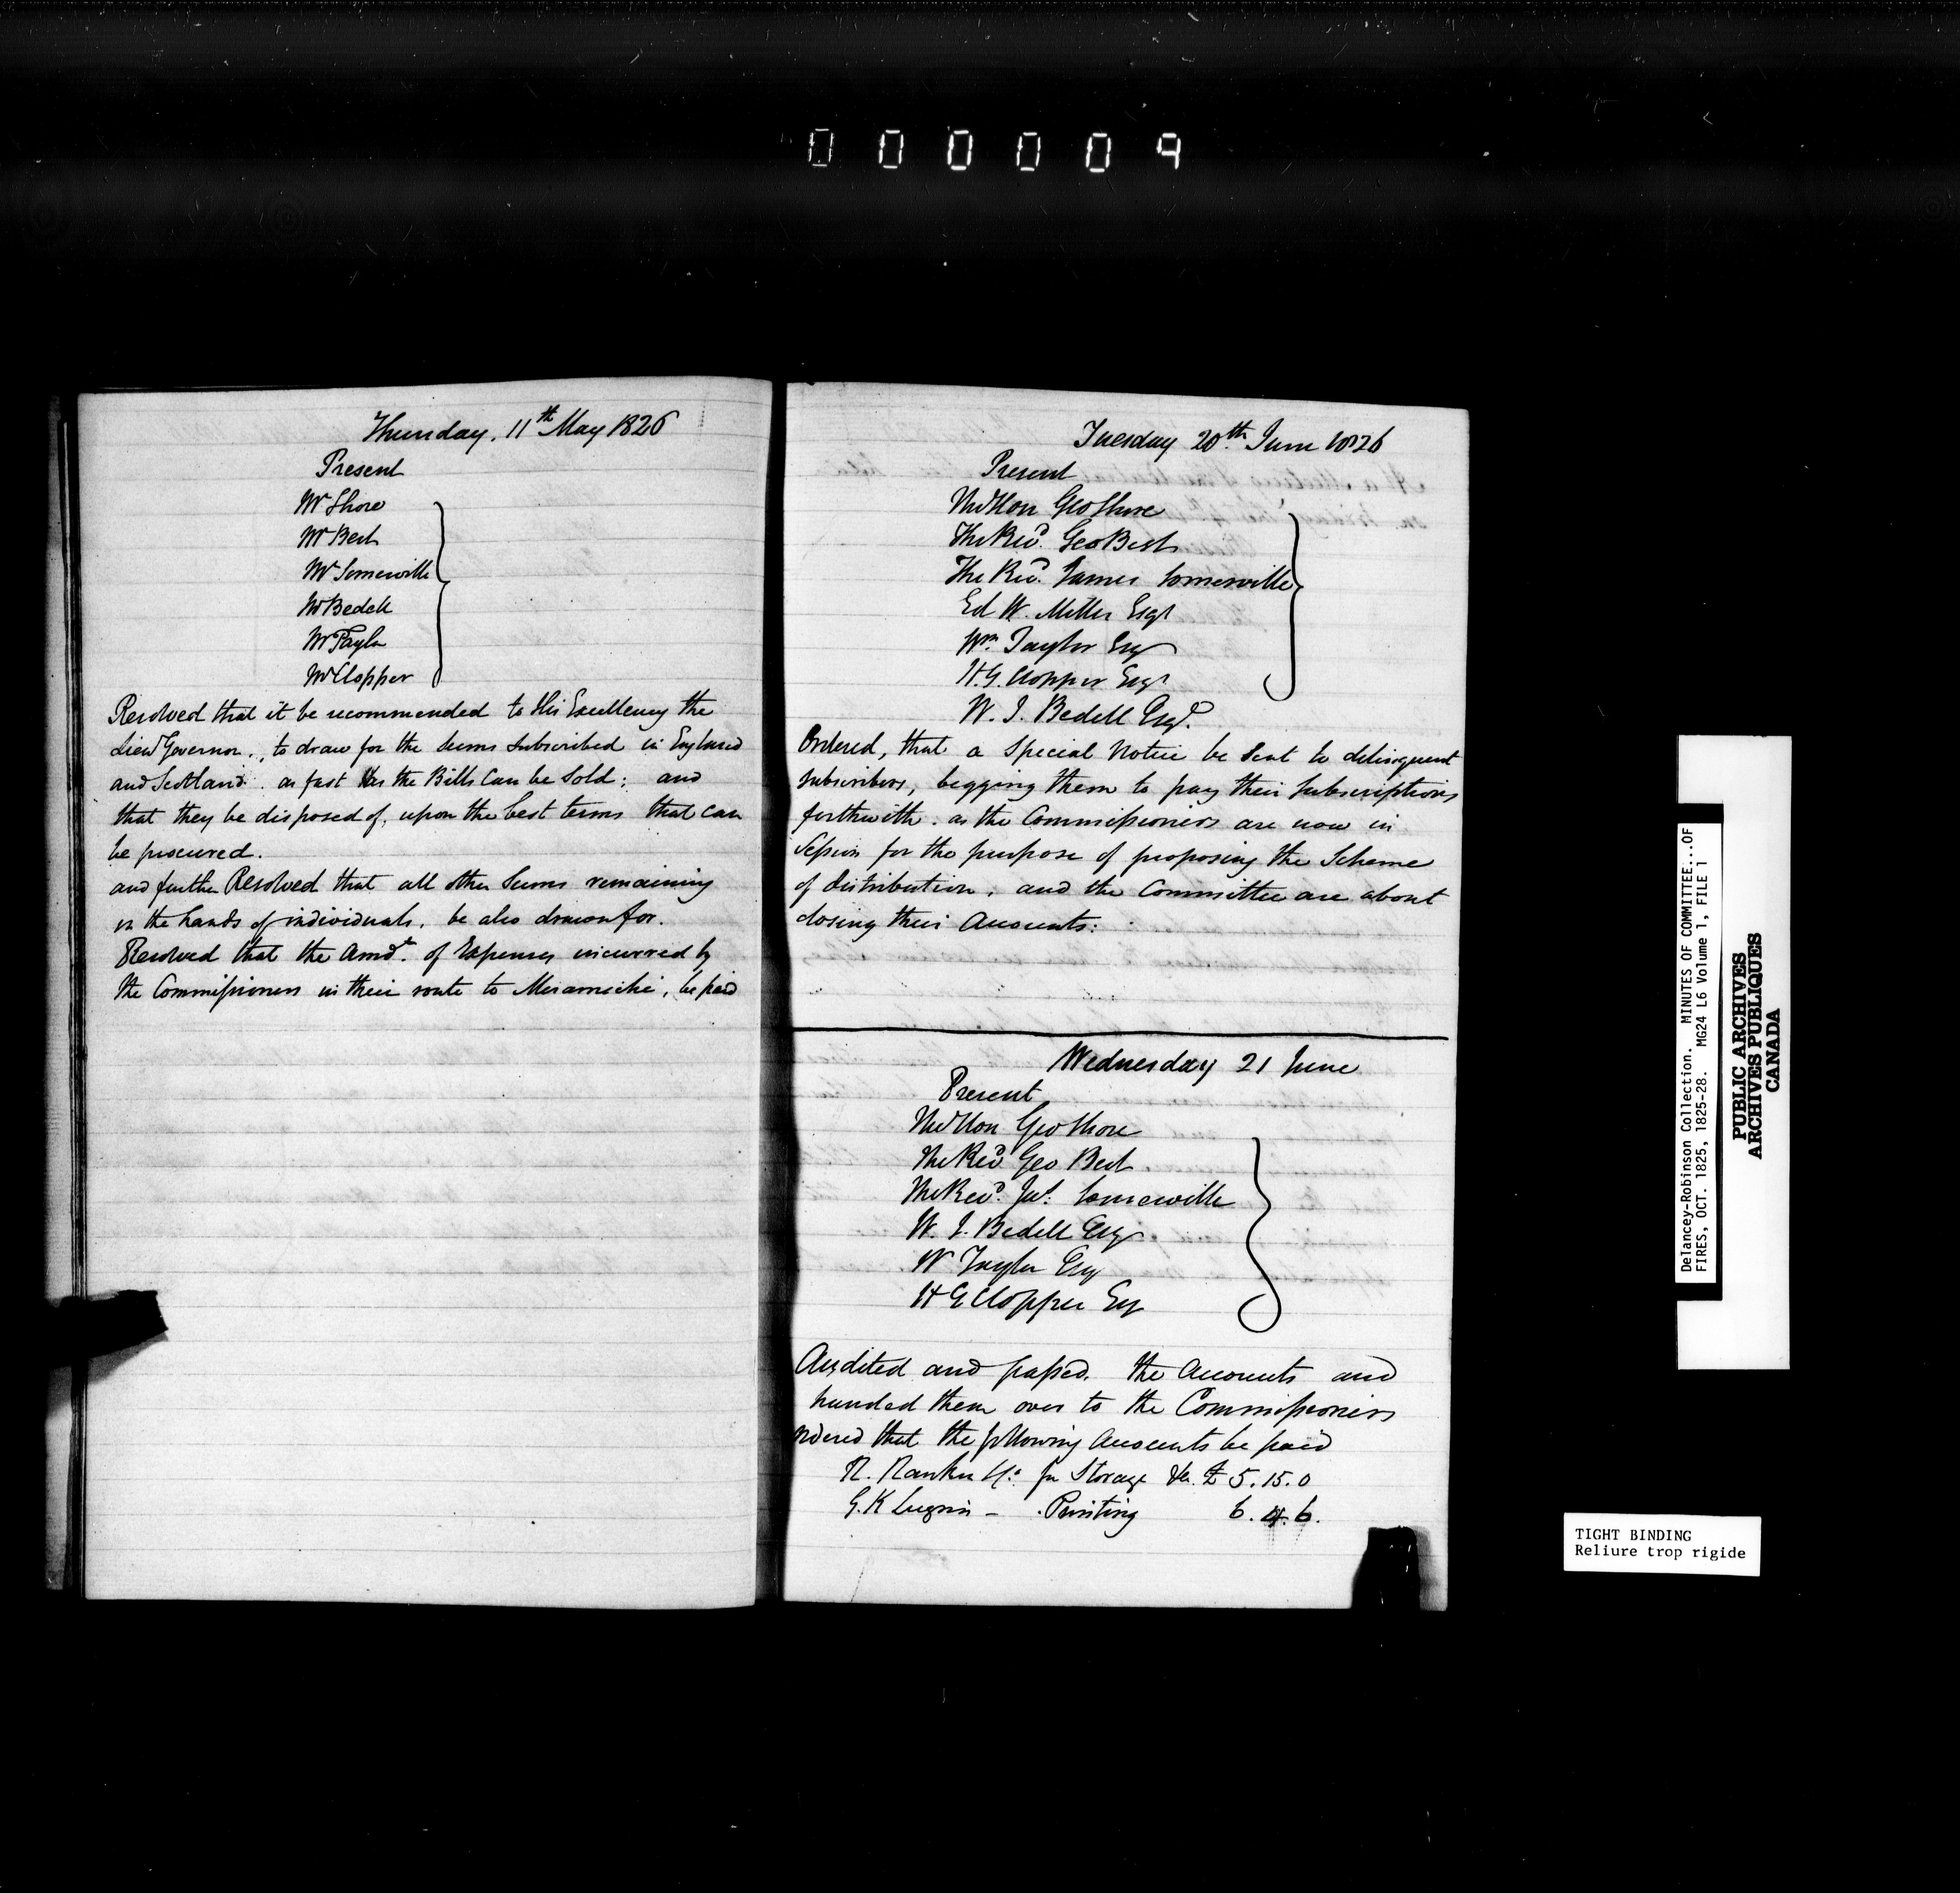 000009
Thursday, 11th May 1826
Present
Mr Shore
Mr Best
Mr Somerville
Mr Bedell
Mr Taylor
Mr Clopper
Resolved that it be recommended to His Excellency the
Lieut Governor, to draw for the Sums Subscribed in England
and Scotland. as fast as the Bills Can be Sold; and
that they be disposed of, upon the best terms that can
be procured.
and further Resolved that all other Sums remaining
in the hands of individuals, be also drawn for.
Resolved that the Amot. of Expenses incurred by
the Commissioners in their route to Miramichi, be paid
Tuesday 20th June 1826
Present
The Hon Geo Shore
The Revd. Geo Best
The Revd. James Somerville
Ed W. Miller Esqr
Wm. Taylor Esq
H.G. Clopper Esqr
W. J. Bedell Esqr.
Ordered, that a Special Notice be Sent to delinquent
subscribers, begging them to pay their Subscriptions
forthwith. as the Commissioners are now in
Session for the purpose of proposing the Scheme
of distribution, and the Committee are about
closing their Accounts:
Wednesday 21 June
Present
The Hon Geo Shore
The Revd Geo Best.
The Revd. Jas. Somerville
W. J. Bedell Esq
W Taylor Esq
H G Clopper Esq
Audited and passed. the Accounts and
handed them over to the Commissioners
rdered that the following Accounts be paid
R. Rankin & Co for Storage &c. £ 5.15.0
G. K Lugrin - Printing 6. 4. 6.
Delancey-Robinson Collection. MINUTES OF COMMITTEE...OF
FIRES, OCT. 1825, 1825-28. MG24 L6 Volume 1, FILE i
PUBLIC ARCHIVES
ARCHIVES PUBLIQUES
CANADA
TIGHT BINDING
Reliure trop rigide